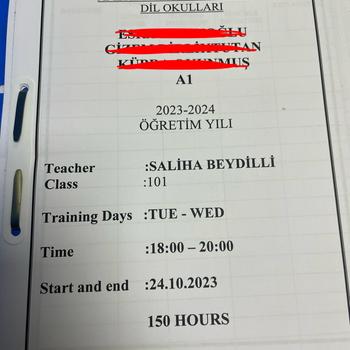 DİL OKULLARI
A1
2023-2024
ÖĞRETİM YILI
Teacher :SALİHA BEYDİLLİ
Class :101
Training Days :TUE - WED
Time :18:00 – 20:00
Start and end :24.10.2023
150 HOURS